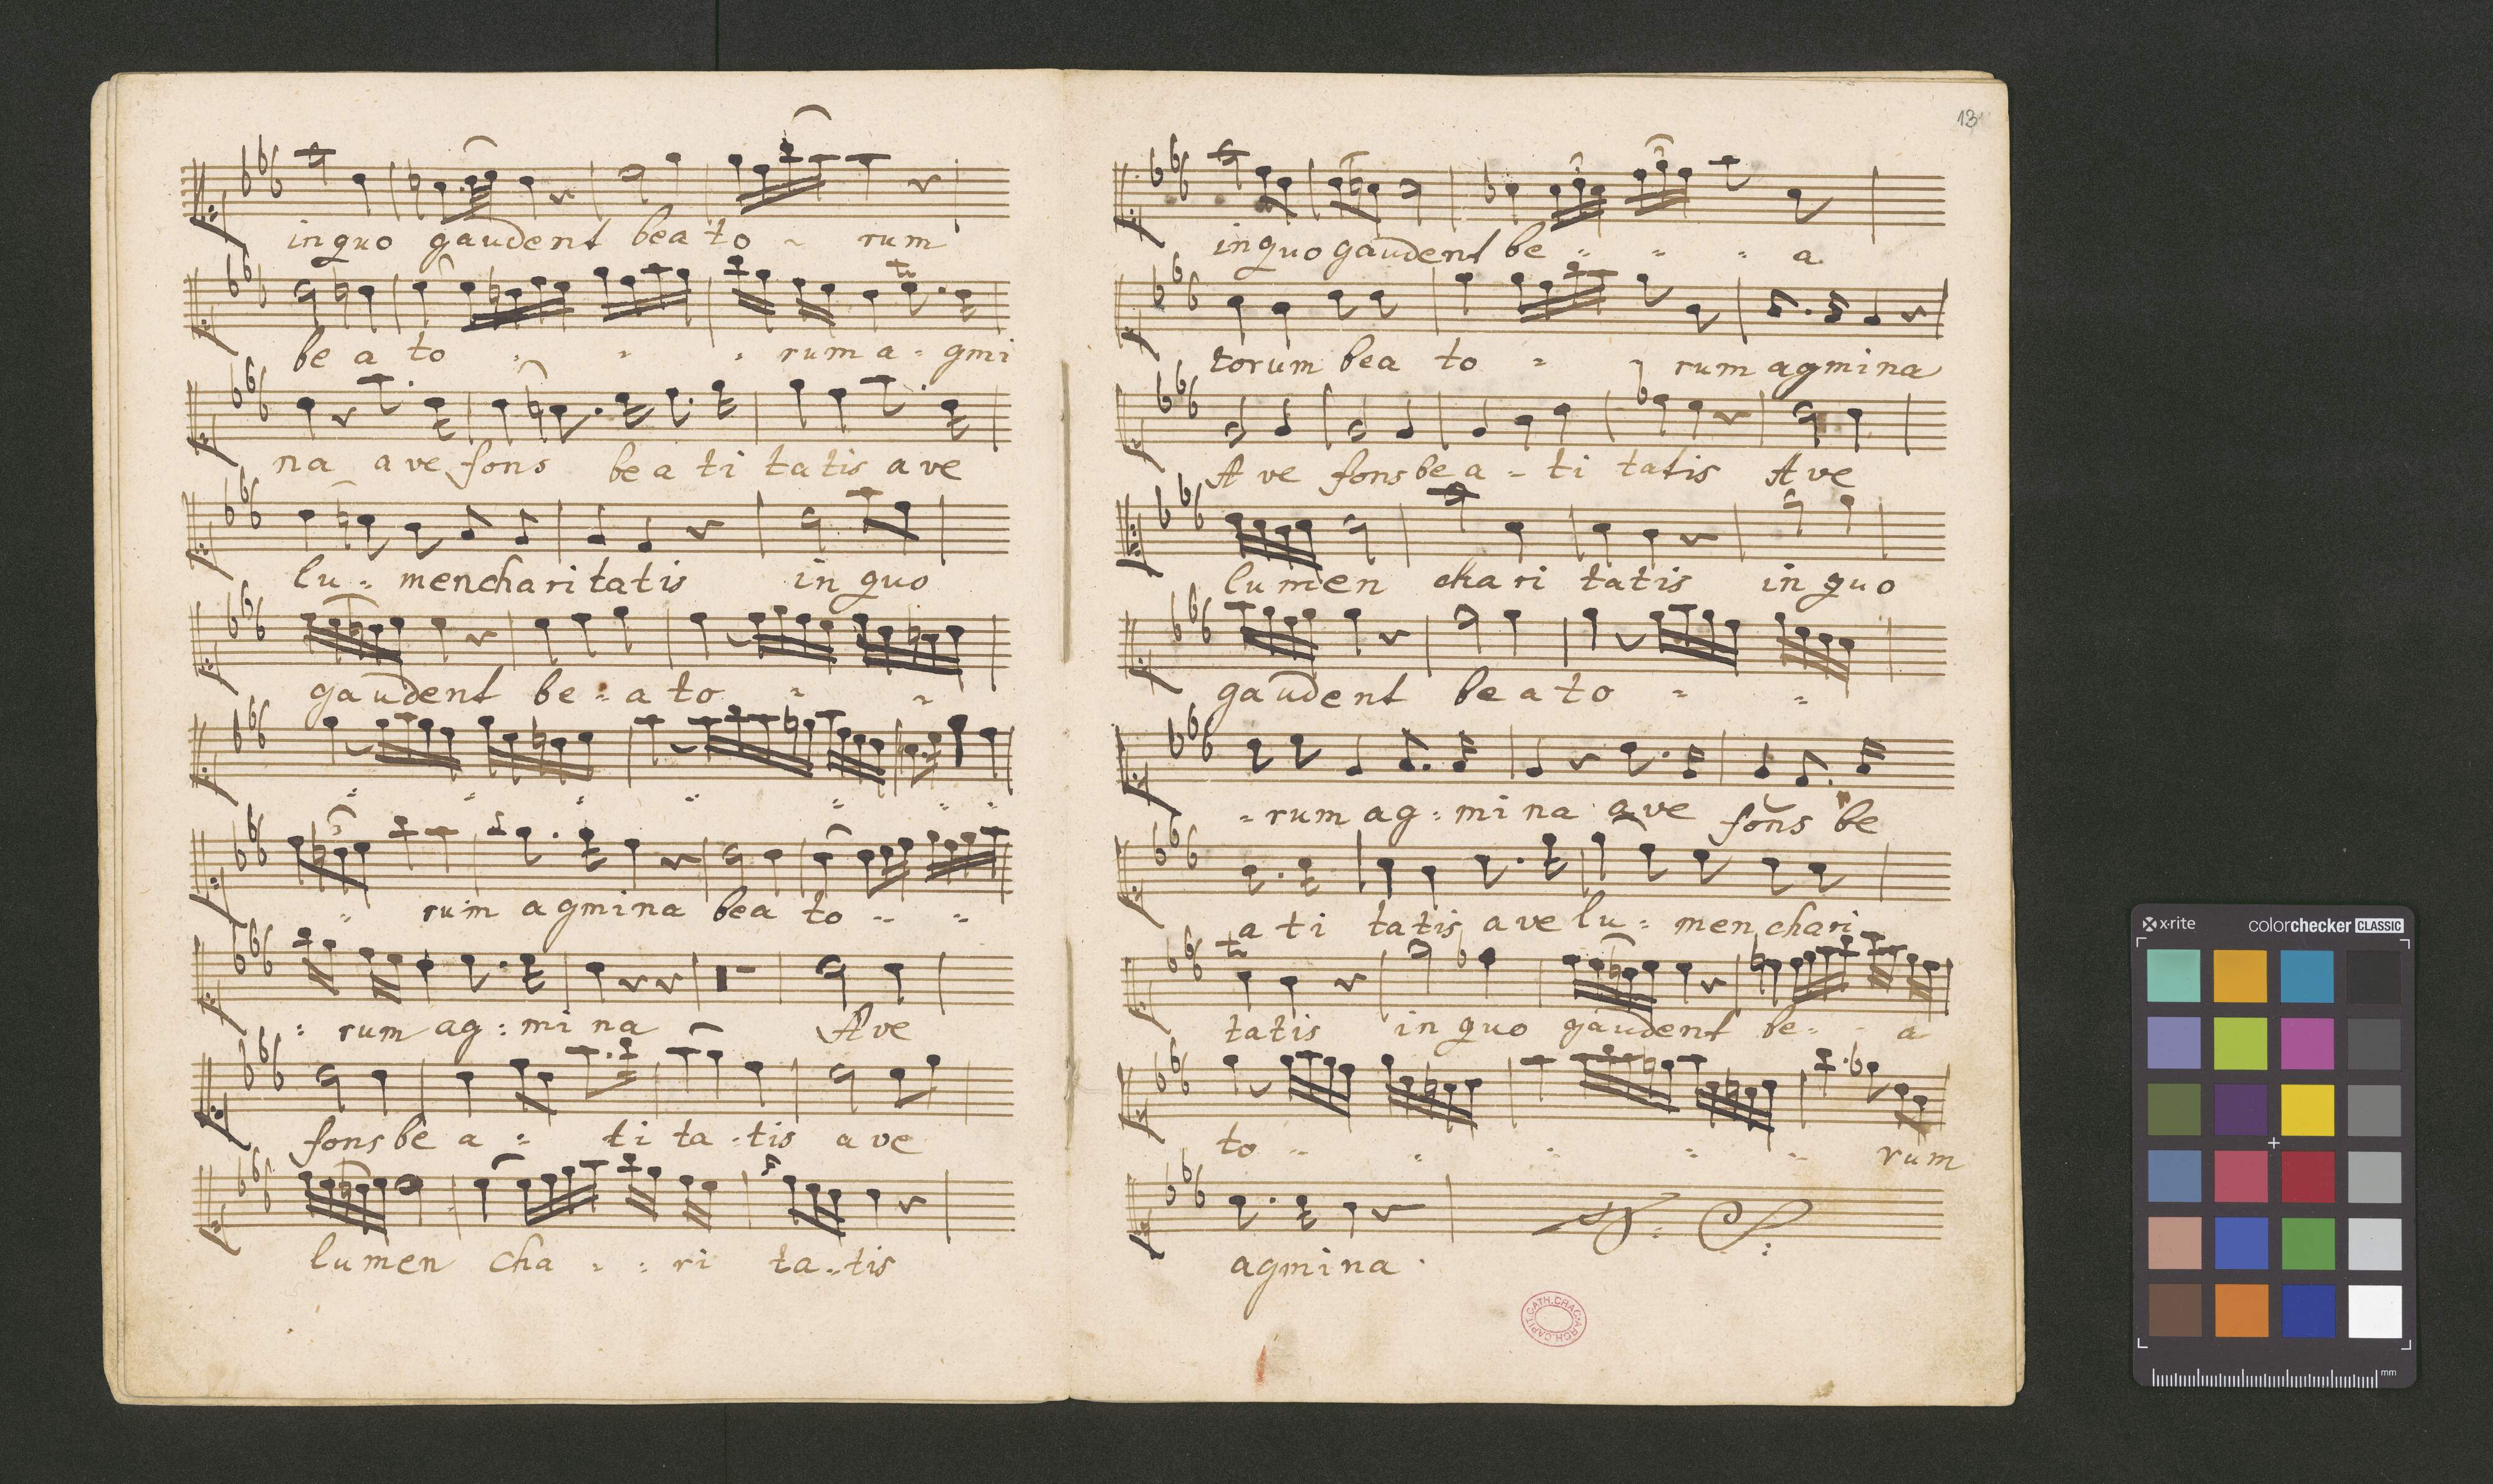 in quo gaudent bea to - rum
be a to - - - rum a - gmi
na ave fons be a ti ta tis ave
lu - men chari tatis in quo
gaudent be - a to - -
- rum agmina bea to - -
- rum ag - mi na Ave
fons be a - ti ta - tis ave
lumen cha - - ri ta - tis
13
in quo gaudent be - - - a
torum bea to - - rum agmina
Ave fons be a - ti tatis Ave
lumen cha ri tatis in quo
gaudent be a to - -
- rum ag - mi na ave fons be
a ti tatis ave lu - men chari
tatis in quo gaudent be - - a
to - - - - - rum
agmina
ARCH. CAPIT. CATH. CRAC.
x-rite colorchecker CLASSIC
mm